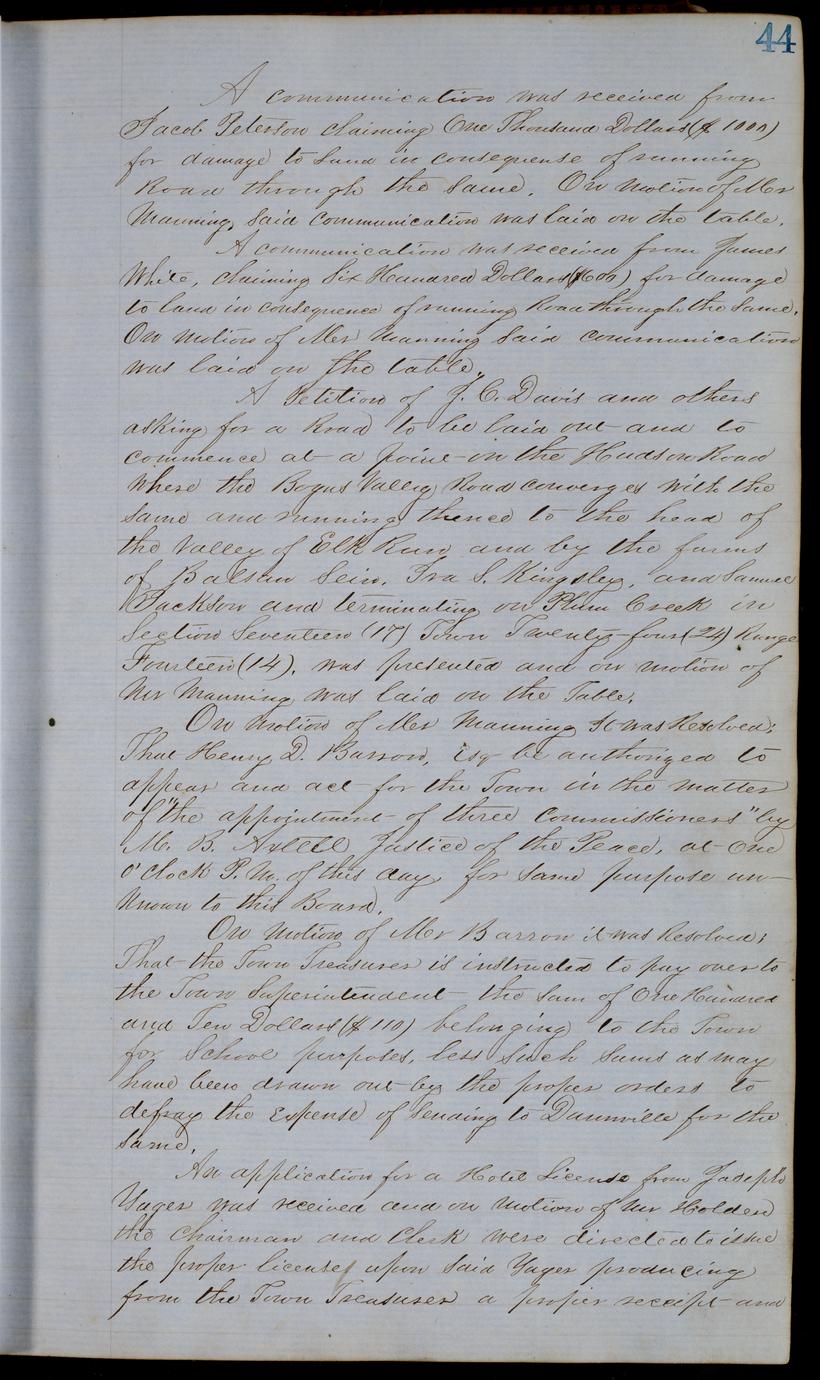 44
A communication was received from
Jacob Peterson claiming One Thousand Dollars ($ 1000)
for damage to Land in consequense of running
Road through the Same. On Motion of Mr
Manning, Said Communication was laid on the table.
A communication was received from James
White, claiming Six Hundred Dollars ($600) for damage
to land in consequence of running Road through the Same.
On motion of Mr Manning Said communication
was laid on the table.
A Petition of J. C. Davis and others
asking for a Road to be laid out and to
commence at a point on the Hudson Road
Where the Bogus Valley Road converges with the
Same and running thence to the head of
the Valley of Elk Run and by the farms
of Ira S. Kingsley, and Samuel
Jackson and terminating on Plum Creek in
Section Seventeen (17) Town Twenty-four (24) Range
Fourteen (14), was presented and on motion of
Mr Manning was laid on the Table.
On Motion of Mr Manning It was Resolved;
That Henry D. Barron, Esq be authorized to
appear and act for the Town in the matter
of "the appointment of three Commissioners" by
M. B. Axtell Justice of the Peace, at One
O'Clock P.M. of this day, for Same purpose un-
known to this Board.
On Motion of Mr Barron it was Resolved;
That the Town Treasurer is instructed to pay over to
the Town Superintendent the Sum of One Hundred
and Ten Dollars ($ 110) belonging to the Town
for School purposes, less Such Sums as may
have been drawn out by the proper orders to
defray the Expense of Sending to Dunnville for the
Same.
An application for a Hotel License from Joseph
Yager was received and on Motion of Mr Holden
the Chairman and Clerk were directed to issue
the proper license upon Said Yager producing
from the Town Treasurer a proper receipt and